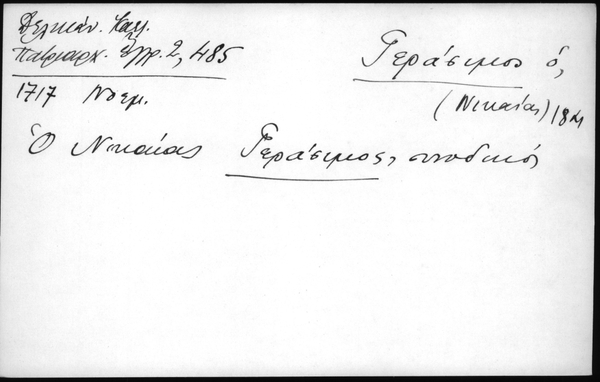 Δελικάν. Καλ.
Πατριαρχ. Ἔγγρ. 2, 485
Γεράσιμος ὁ,
1717 Νοεμ.
(Νικαίας) 18ος
Ὁ Νικαίας Γεράσιμος, συνοδικός